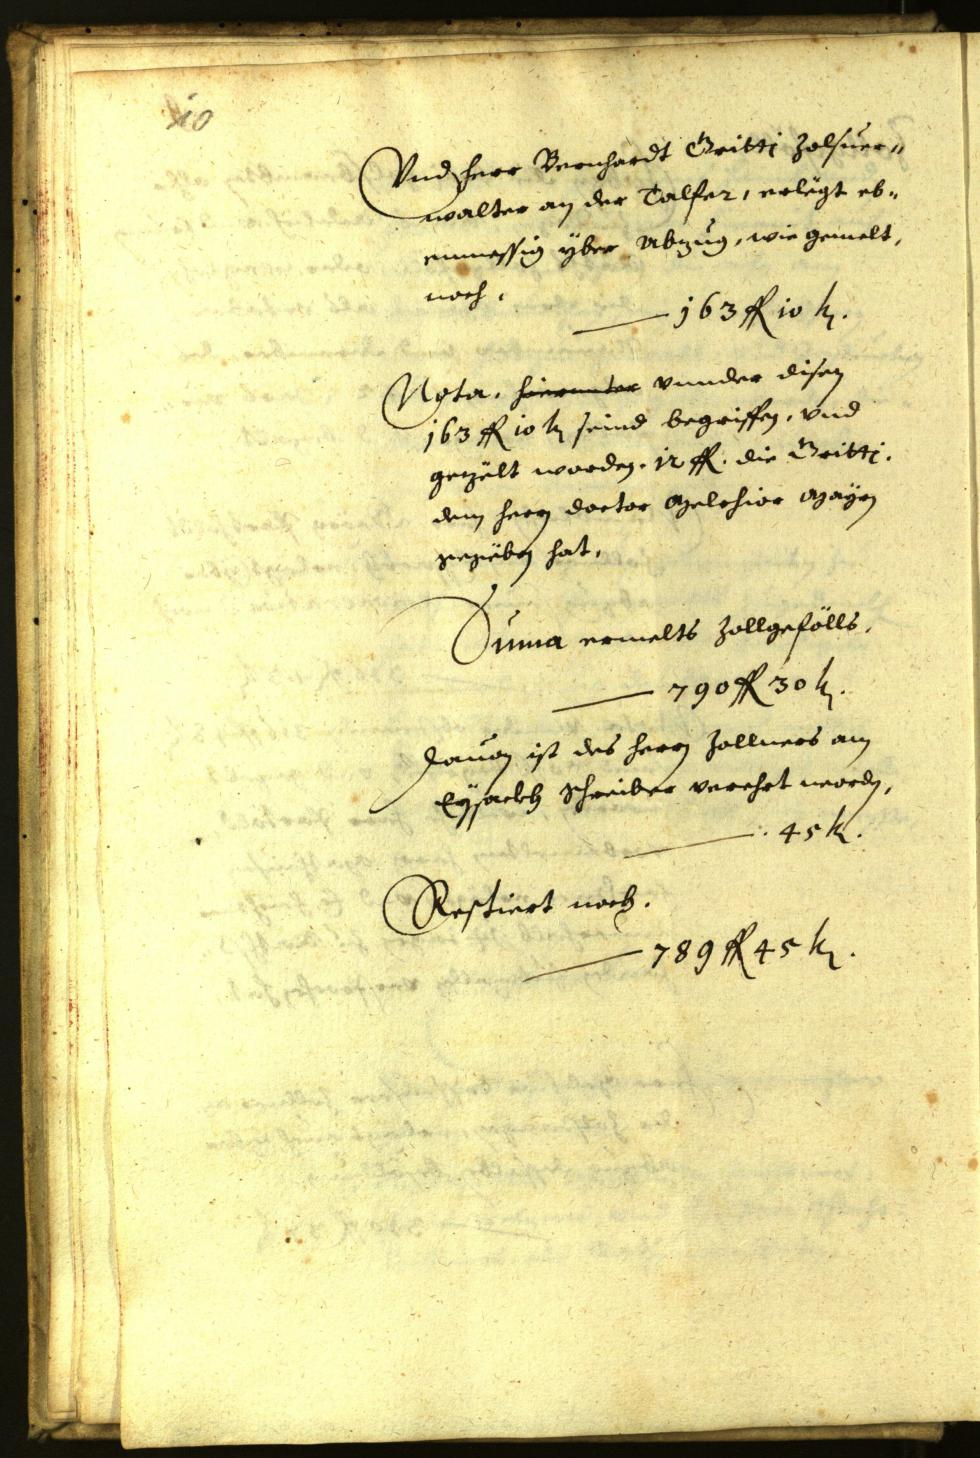 10
Vnd herr Bernhardt Gritti Zolsuer„
walter an der Talfer, erlegt eb„
enmessig yber Abzug, wie gemelt,
noch,
163 ff 10 k.
Nota, hierunter vnnder disen
163 ff 10 k seind begriffen, vnd
gezelt worden, 12 ff, die Gritti,
dem herrn doctor Melchior Mayrn
gegeben hat,
Suma ermelts Zollgefölls,
790 ff 30 k.
Dauon ist des herrn Zollners am
Eysackh Schreiber verehrt worden,
45 k.
Restiert noch.
789 ff 45 k.